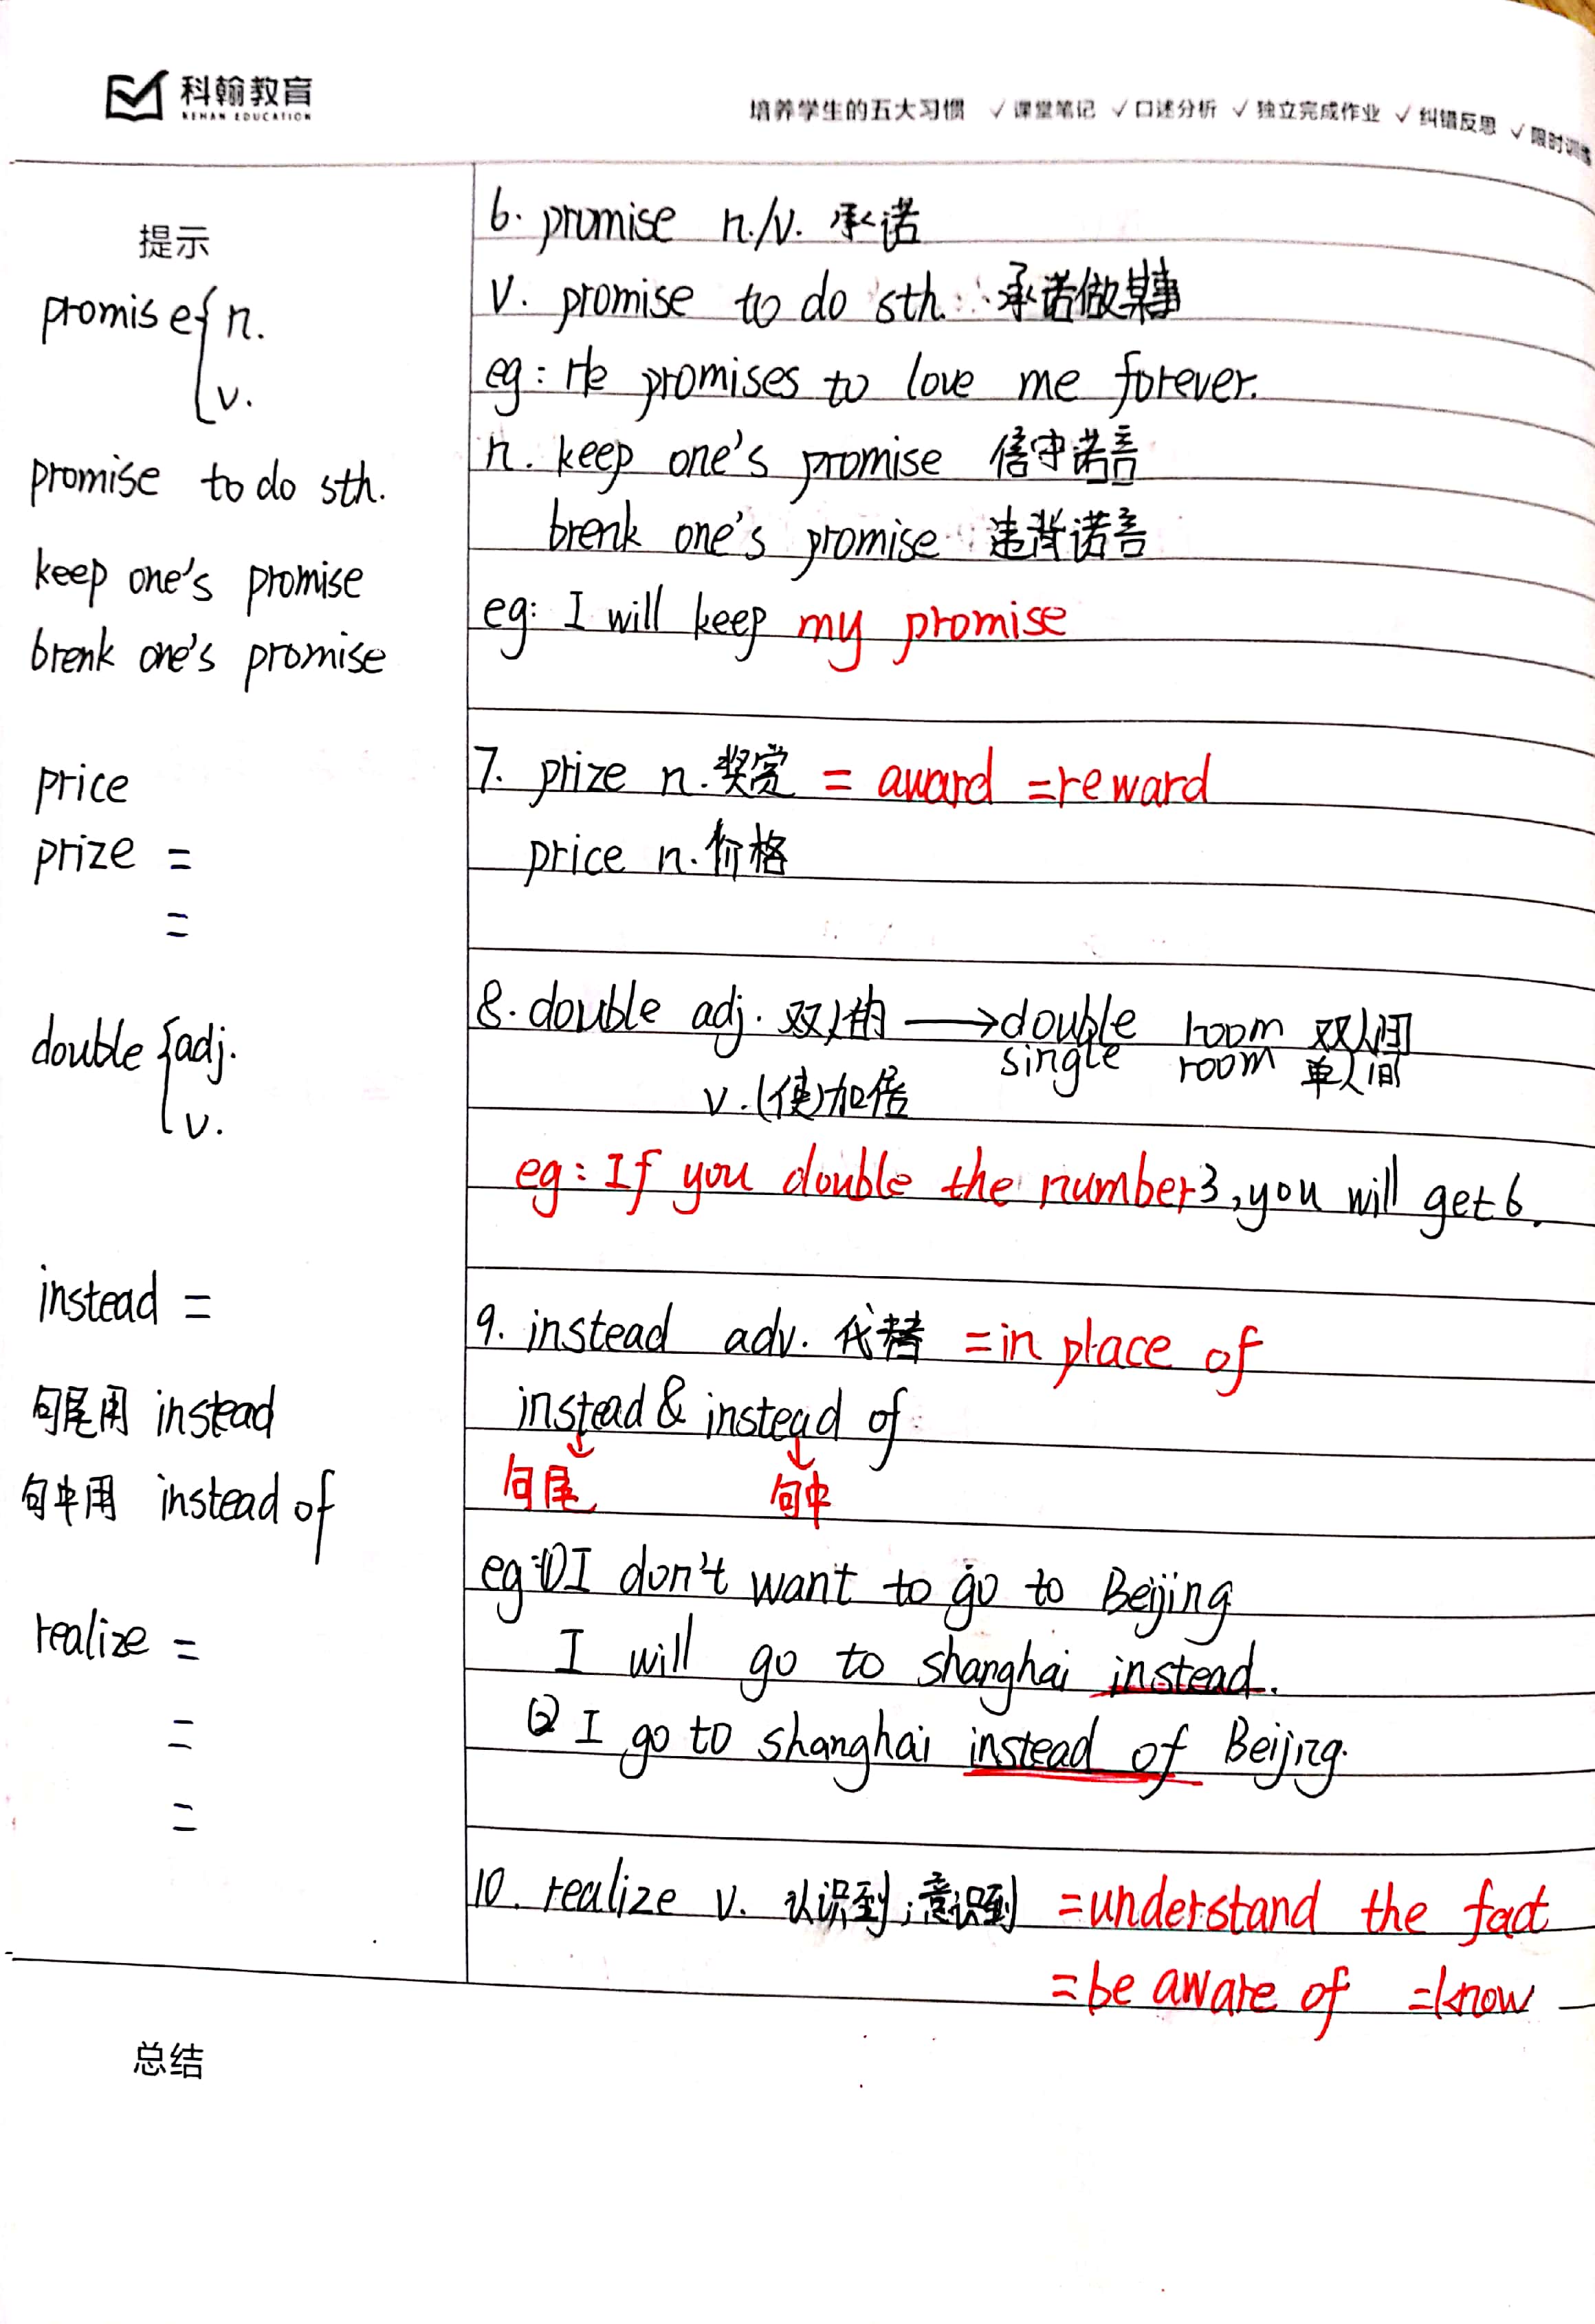 科翰教育
KEHAN EDUCATION
培养学生的五大习惯 ✓课堂笔记 ✓口述分析 ✓独立完成作业 ✓纠错反思 ✓限时训练
提示
promise { n.
v.
promise to do sth.
keep one's promise
brenk one's promise
price
prize =
=
double { adj.
v.
instead =
句尾用 instead
句中用 instead of
realize =
=
=
6. promise n./v. 承诺
v. promise to do sth. 承诺做某事
eg: He promises to love me forever.
n. keep one's promise 信守诺言
brenk one's promise 违背诺言
eg: I will keep my promise
7. prize n. 奖赏 = award = reward
price n. 价格
8. double adj. 双人的 → double room 双人间
single room 单人间
v. (使)加倍
eg: If you double the number 3, you will get 6.
9. instead adv. 代替 = in place of
instead & instead of
↓ ↓
句尾 句中
eg: ① I don't want to go to Beijing
I will go to shanghai instead.
② I go to shanghai instead of Beijing.
10. realize v. 认识到; 意识到 = understand the fact
= be aware of = know
总结